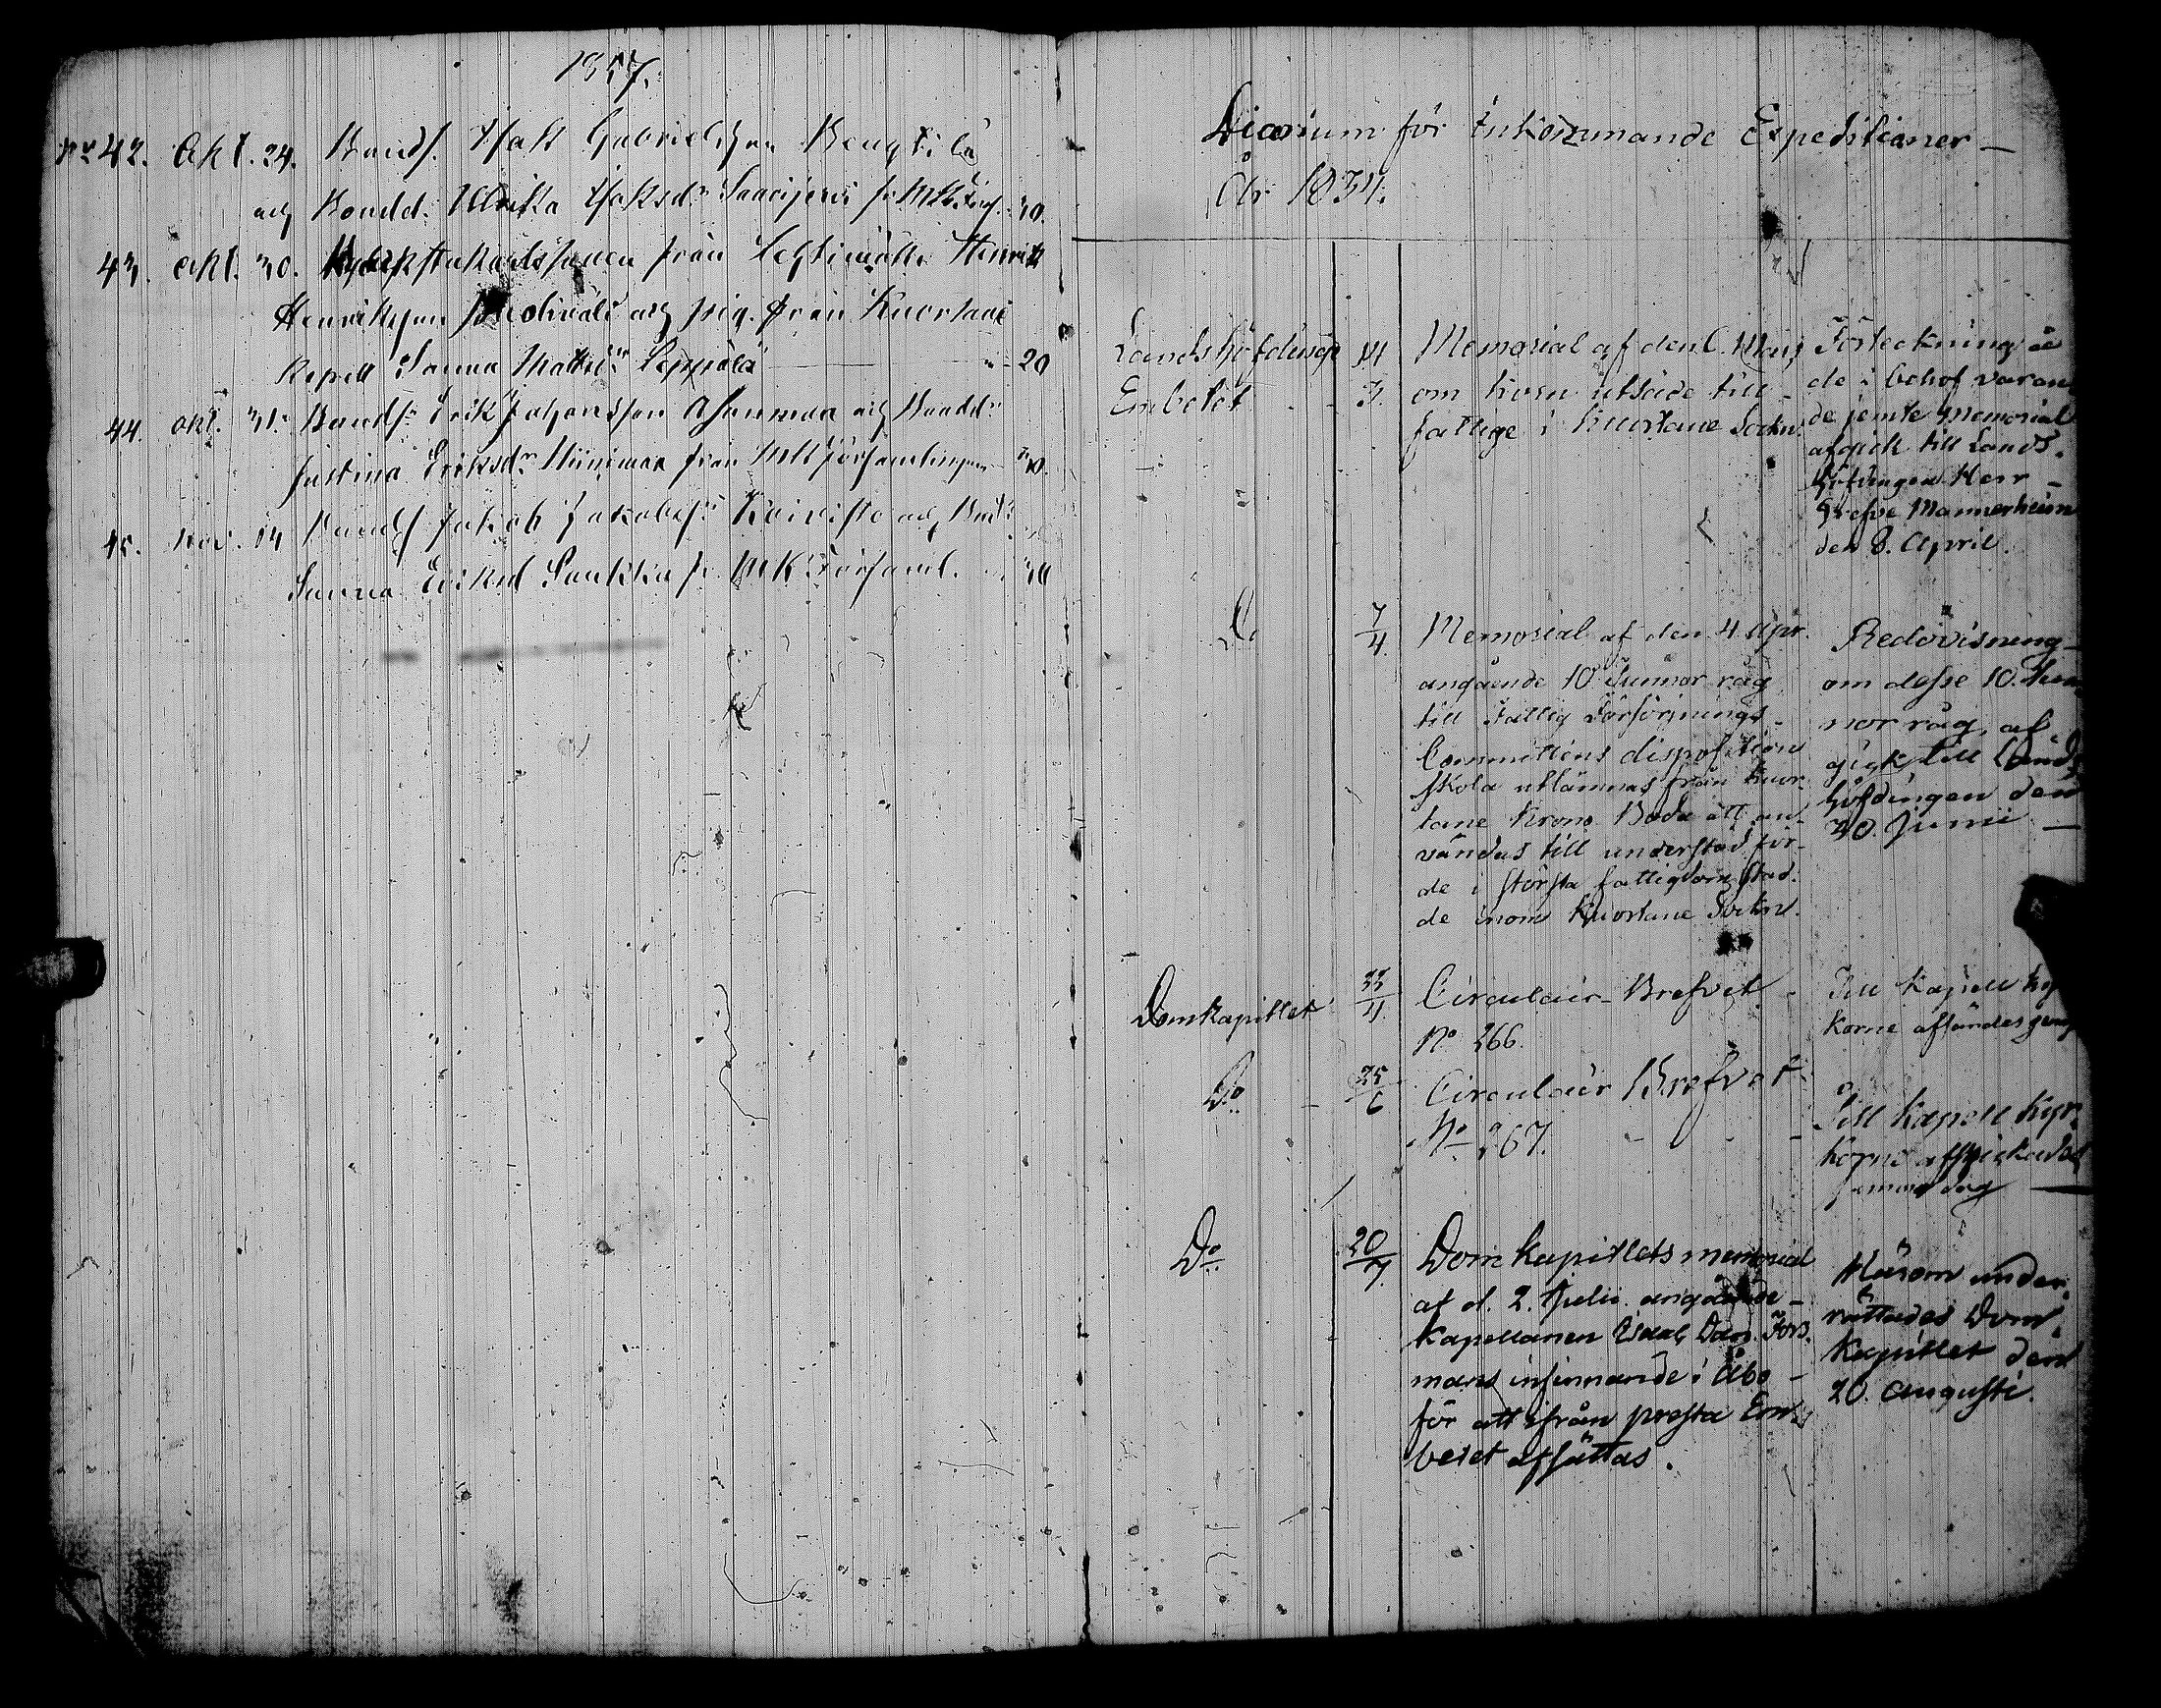 1857.
No 42. Okt. 24. Bonds. Isak Gabrielsson Bengtilä
och Bondd. Ulrika Isaksdr Saarijervi fr. Mk Förs. 30.
43. Okt. 30. från Lehtimäki Henrik
Henriksson och pig. från Kuortane
Kapell Sanna Mattsdr Leppälä — 20
44. Okt. 31. Bonds. Erik Johansson Asunmaa och Bondd.
Justina Eriksdr Hiinimaa från Mk församlingen 30.
45. Nov. 14 Bonds. Jakob Jakobss. Koivisto och
Sanna Eriksd. Saukko fr. Mk Församl. 30
Diarium för Inkommande Expeditioner —
År 1834.
Landshöfdinge
Embetet
Memorial af den
om korn utsäde till
fattige i Kuortane Sockn.
Förteckning å
de i behof varan
de jemte memorial
afgick till Lands-
höfdingen Herr
Grefve Mannerheim
den 8. April.
Do
7/4.
Memorial af den 4 Apr.
angående 10 Tunnor råg
till Fattig Försörjnings-
Committéns disposition
skola utlämnas från Kuor-
tane Krono Boda att an-
vändas till understöd för
de i största fattigdom stad-
de inom Kuortane Sockn.
Redovisning
om desse 10. Tun-
nor råg, af-
gick till Lands-
höfdingen den
30. Junii —
Domkapitlet
Circulair-Brefvet
No 266.
Till Kapell kyr
korne afsändes genast
Do
25/6
Circulair Brefvet
No 267.
Till Kapell Kyr-
korne afskickades
samma dag —
Do
20/7
Domkapitlets memorial
af d. 2. Julii angående
Kapellanen Isaac Dan. Fors-
mans infinnande i Åbo
för att ifrån presta Em-
betet afsättas.
Härom under-
rättades Dom-
kapitlet den
20. Augusti.